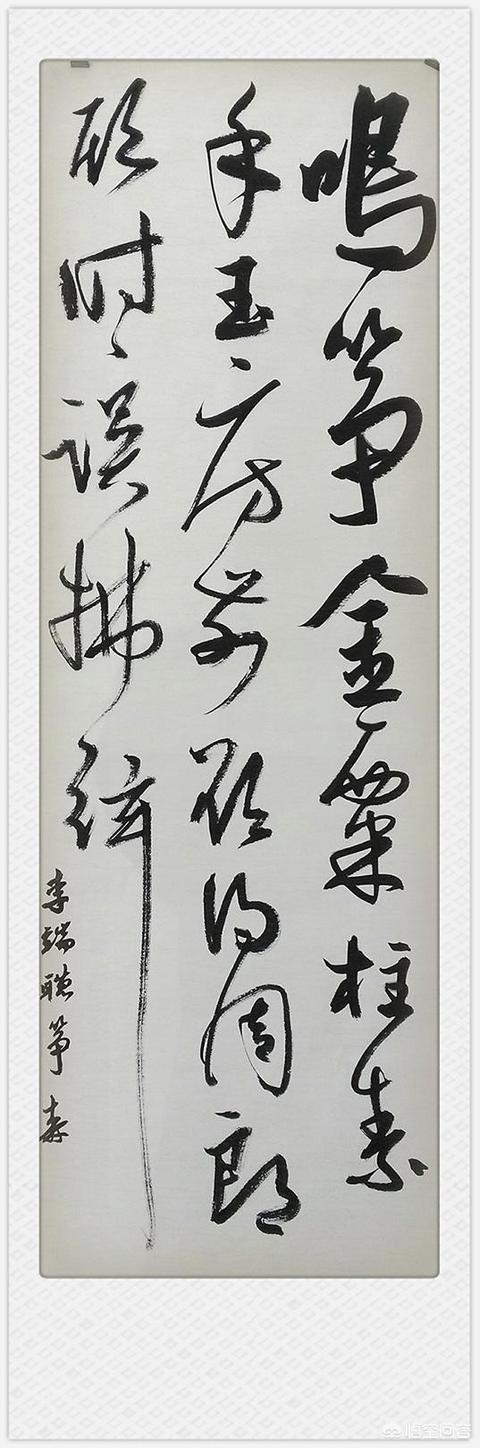 鸣筝金粟柱素
手玉房前欲得周郎
顾时时误拂弦
李端听筝 寿
悟空问答